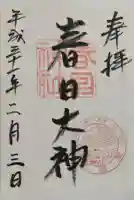 奉拝
春日大神
平成三十一年二月三日